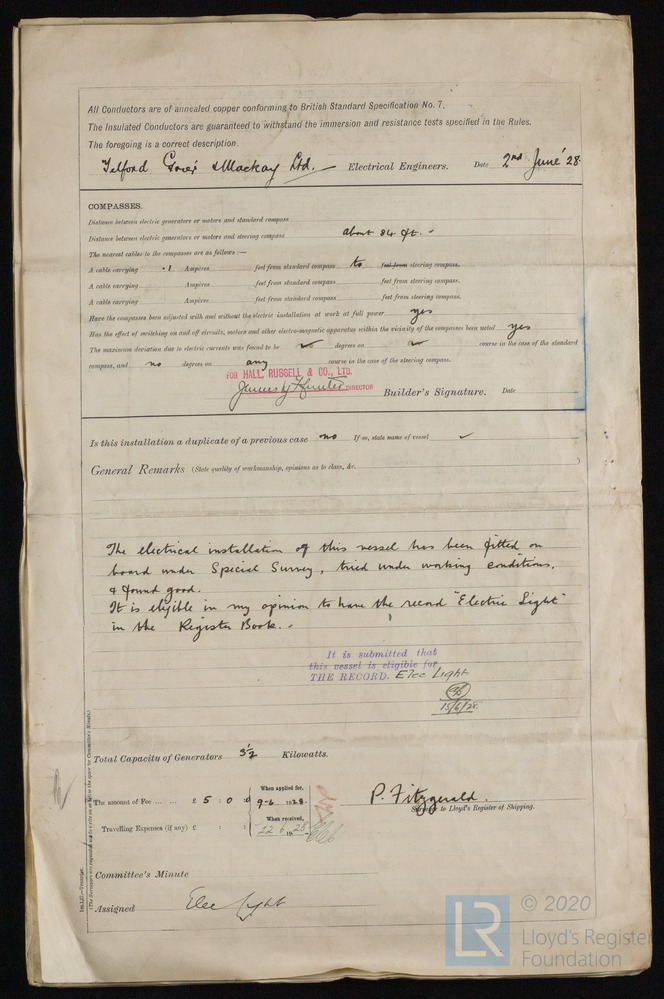 All Conductors are of annealed copper conforming to British Standard Specification No. 7.
The Insulated Conductors are guaranteed to withstand the immersion and resistance tests specified in the Rules.
The foregoing is a correct description.
Telford Grier & Mackay Ltd. Electrical Engineers. Date 2nd June 28
COMPASSES.
Distance between electric generators or motors and standard compass
Distance between electric generators or motors and steering compass about 84 ft.
The nearest cables to the compasses are as follows:—
A cable carrying .1 Ampères feet from standard compass to feet from steering compass.
A cable carrying Ampères feet from standard compass feet from steering compass.
A cable carrying Ampères feet from standard compass feet from steering compass.
Have the compasses been adjusted with and without the electric installation at work at full power yes
Has the effect of switching on and off circuits, motors and other electro-magnetic apparatus within the vicinity of the compasses been noted yes
The maximum deviation due to electric currents was found to be degrees on course in the case of the standard
compass, and no degrees on any course in the case of the steering compass.
FOR HALL, RUSSELL & CO., LTD.
DIRECTOR Builder's Signature. Date
Is this installation a duplicate of a previous case no If so, state name of vessel
General Remarks (State quality of workmanship, opinions as to class, &c.
The electrical installation of this vessel has been fitted on
board under Special Survey, tried under working conditions,
& found good.
It is eligible in my opinion to have the record "Electric Light"
in the Register Book.
It is submitted that
this vessel is eligible for
THE RECORD. Elec Light
15/6/28
Total Capacity of Generators 3½ Kilowatts.
The amount of Fee ... ... £ 5 : 0 : 0 When applied for, 9-6 1928.
P. Fitzgerald.
Surveyor to Lloyd's Register of Shipping.
Travelling Expenses (if any) £ : : When received, 22.6.1928
Committee's Minute
Assigned Elec Light
LR © 2020
Lloyd's Register
Foundation